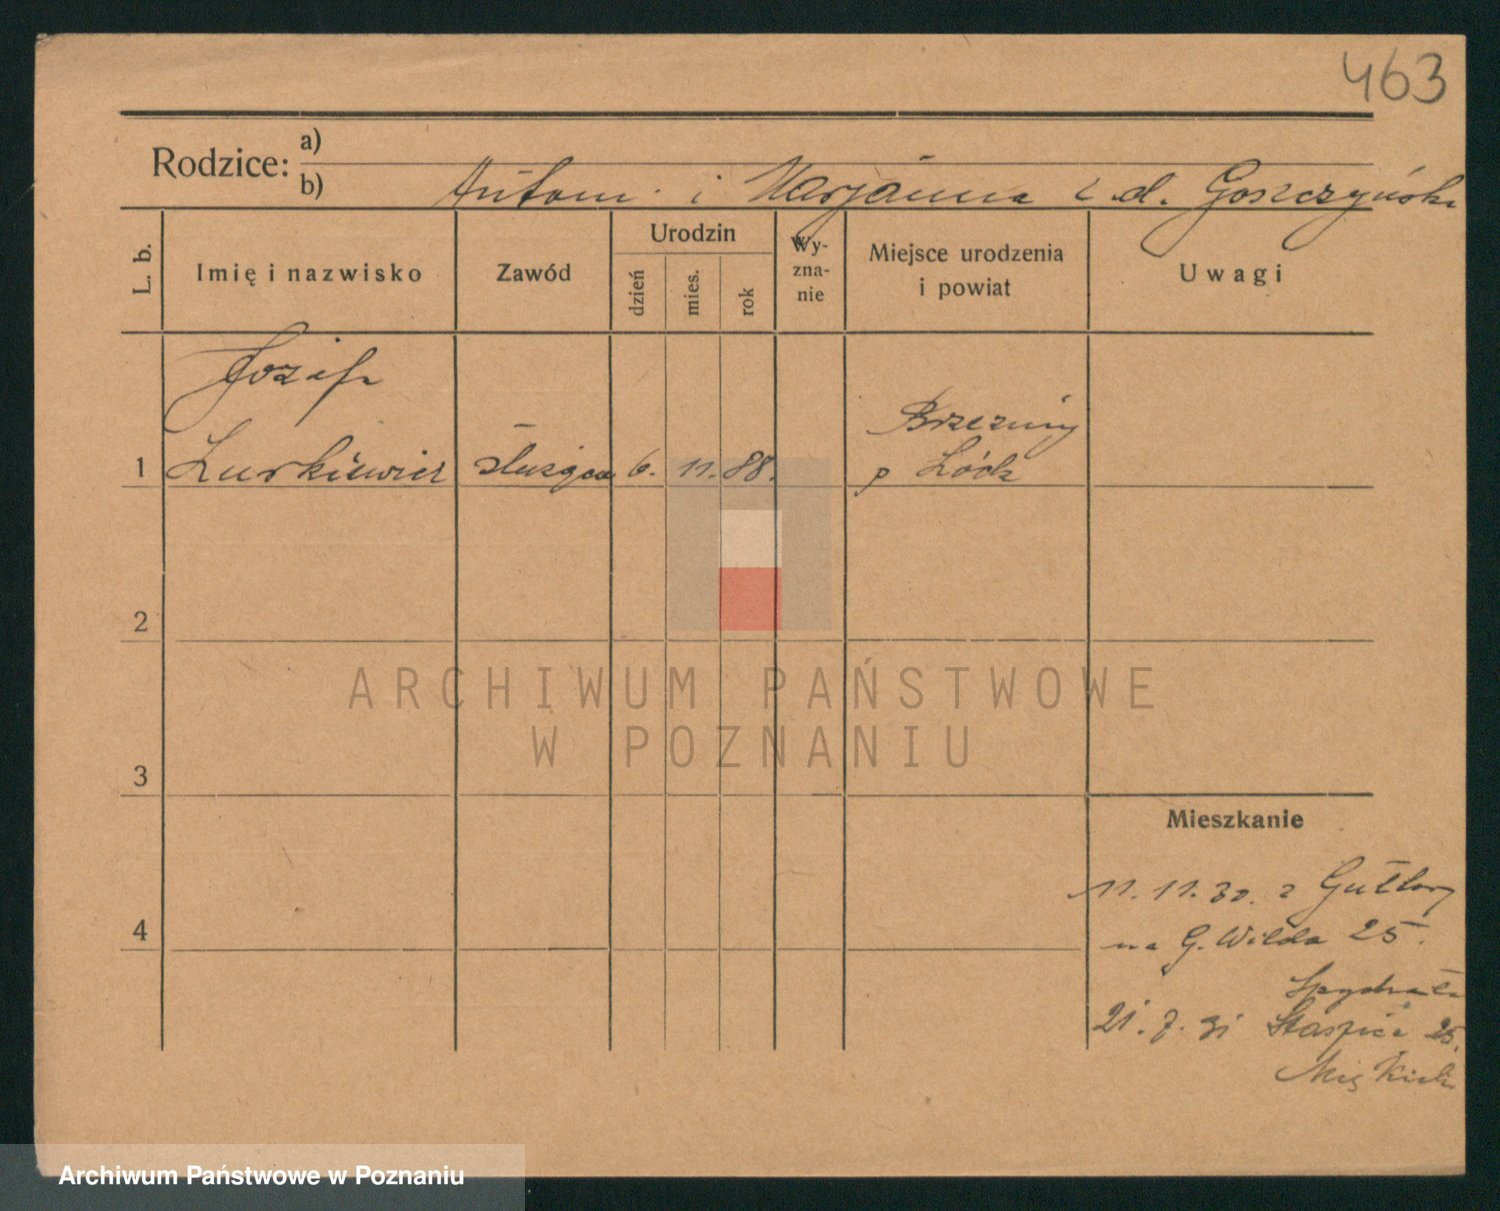 463
Rodzice: a)
b) Antoni i Marjanna z d. Goszczyńska
L. b.
Imię i nazwisko
Zawód
Urodzin
dzień
mies.
rok
Wy-
zna-
nie
Miejsce urodzenia
i powiat
Uwagi
Józef
Brzeziny
1 Żurkiewicz służąca 6. 11. 88. p Łódź
2
3
Mieszkanie
11. 11. 30. z Gułtowy
4
na G. Wilda 25.
21. 7. 31 25.
ARCHIWUM PAŃSTWOWE
W POZNANIU
Archiwum Państwowe w Poznaniu